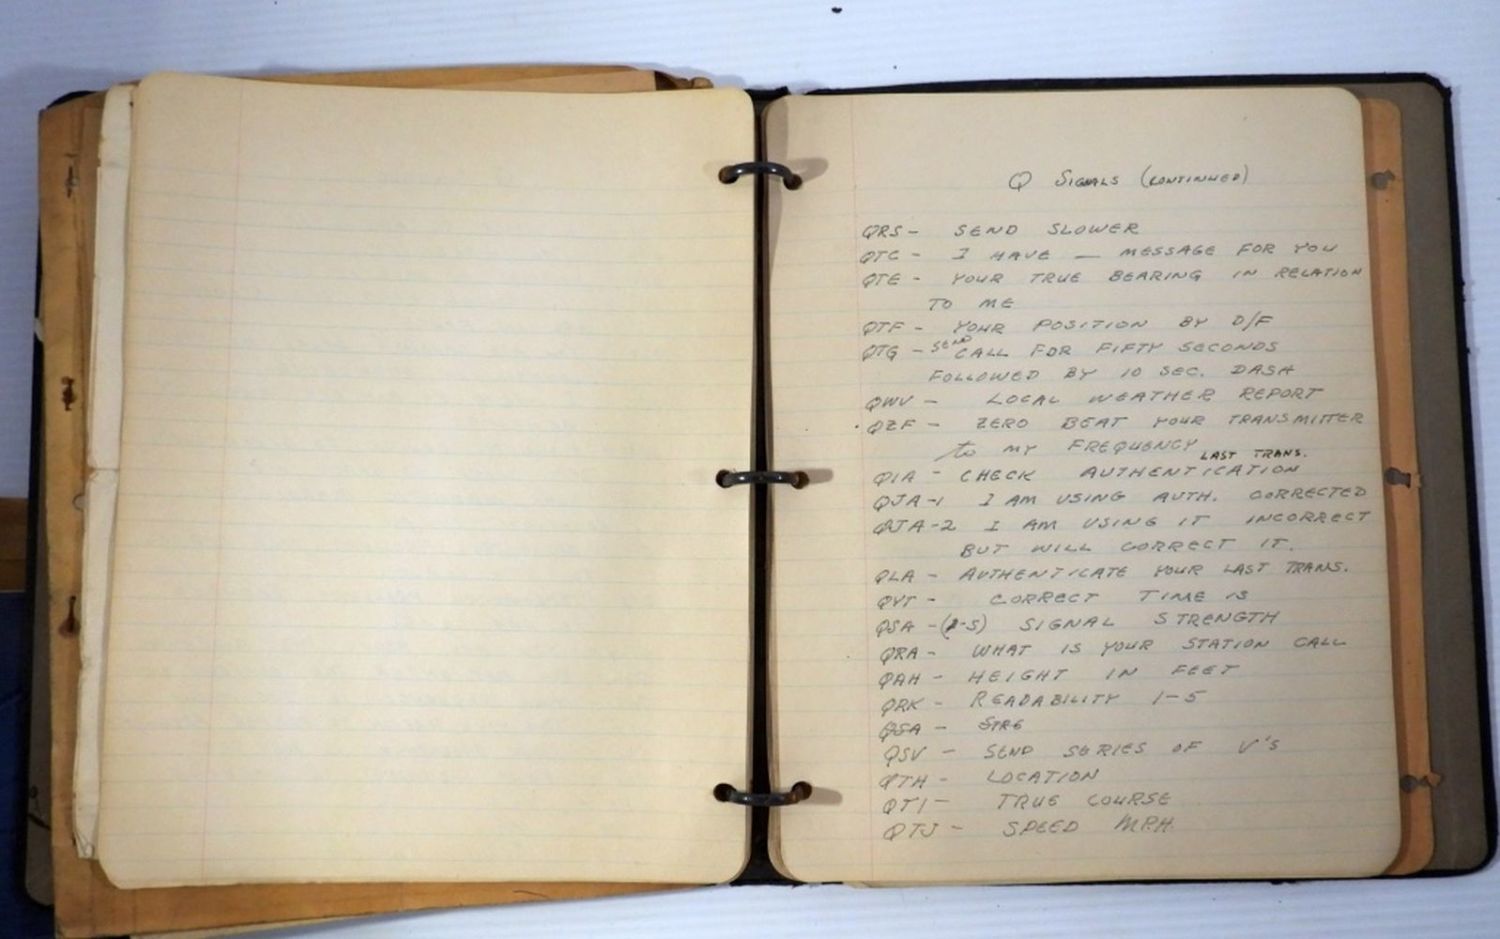 Q SIGNALS (CONTINUED)
QRS - SEND SLOWER
QTC - I HAVE — MESSAGE FOR YOU
QTE - YOUR TRUE BEARING IN RELATION
TO ME
QTF - YOUR POSITION BY D/F
QTG - SEND CALL FOR FIFTY SECONDS
FOLLOWED BY 10 SEC. DASH
QWV - LOCAL WEATHER REPORT
QZF - ZERO BEAT YOUR TRANSMITTER
to MY FREQUENCY
LAST TRANS.
QIA - CHECK AUTHENTICATION
QJA-1 I AM USING AUTH. CORRECTED
QJA-2 I AM USING IT INCORRECT
BUT WILL CORRECT IT.
QLA - AUTHENTICATE YOUR LAST TRANS.
QVT - CORRECT TIME IS
QSA - (1-5) SIGNAL STRENGTH
QRA - WHAT IS YOUR STATION CALL
QAH - HEIGHT IN FEET
QRK - READABILITY 1-5
QSA - STRG
QSV - SEND SERIES OF V'S
QTH - LOCATION
QTI - TRUE COURSE
QTJ - SPEED M.P.H.